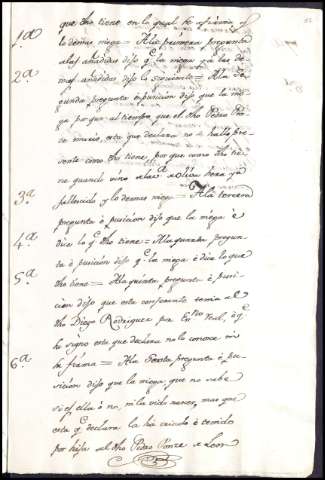 que dho tiene en lo qual se afirma y
1.ª lo demas niega = A la primera pregunta
alas añadidas dijo q.e la niega y las de
2.ª mas añadidas dijo lo siguiente = A la se
gunda pregunta o pusicion dijo que la nie
ga por que al tiempo que el dho Pedro Pon
ce murio, esta que declara no se halló pre
sente como dho tiene, por que como dho tie
ne quando vino a la
fallecido y lo demas niega = A la tercera
3.ª pregunta ò posicion dijo que la niega è
dice lo q.e dho tiene = A la quarta pregun
4.ª ta ò posicion dijo q.e la niega è dice lo que
dho tiene = A la quinta pregunta è pusi
5.ª cion dijo que esta confesando tenia al
dho Diego Rodriguez por Es.no Real, è q.e
ha signo este que declara no lo conoce ni
la firma = A la Sexta pregunta è pu
6.ª sicion dijo que la niega, que no sabe
si es ella ò no, ni la vido nacer, mas que
esta q.e declara la há criado è tenido
por hija del dho Pedro Ponze de Leon